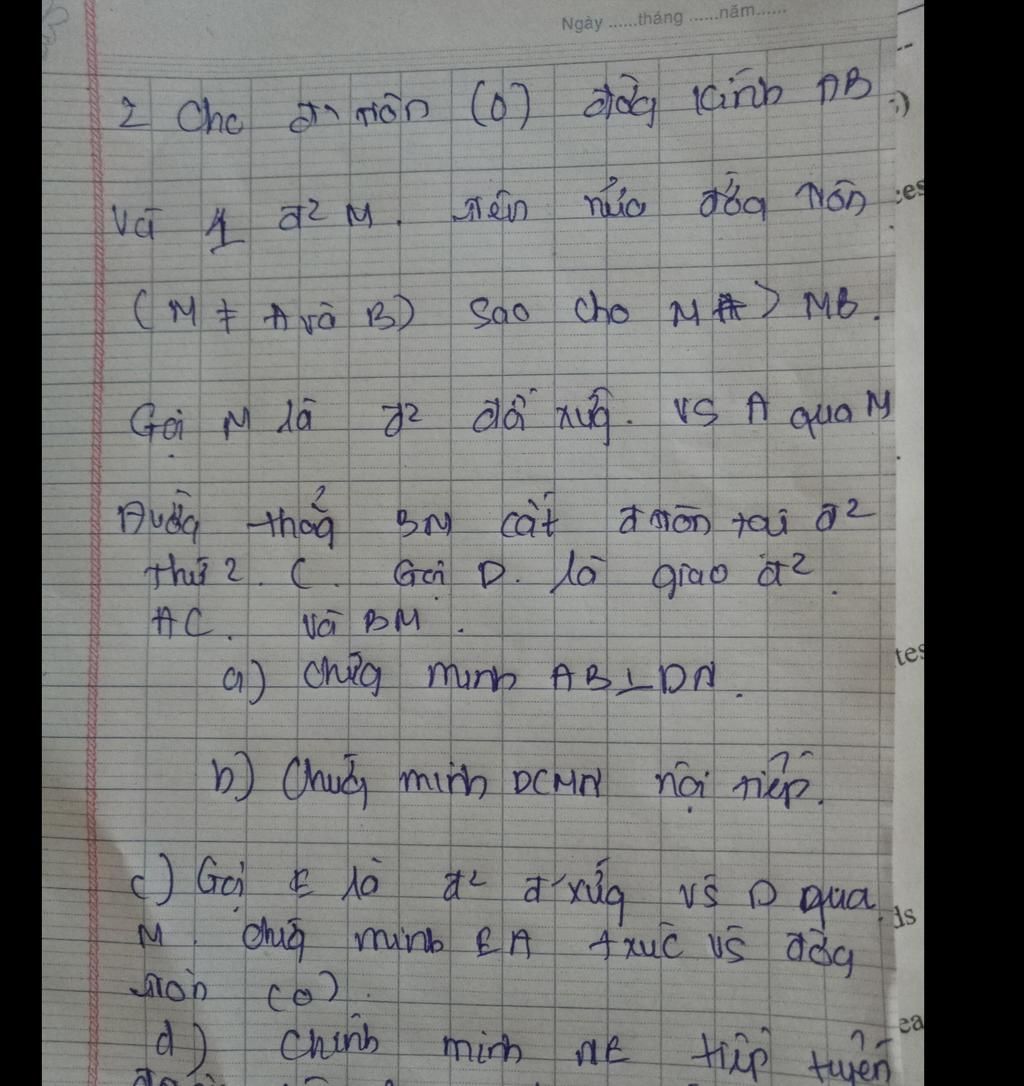 Ngày ......tháng ......năm......
2 Cho đ tròn (O) đờg kính AB
và 1 đ² M. trên nửa đờg tròn
(M ≠ A và B) sao cho MA > MB.
Gọi N là đ² đối xứg. vs A qua M
Đường thẳg BN cắt đ tròn tại đ²
thứ 2. C. Gọi D. là giao đ².
AC. và BM.
a) Chứg minh AB ⊥ DN.
b) Chứg minh DCMN nội tiếp.
c) Gọi E là đ² đ xứg vs D qua
M. chứg minh EA txúc vs đờg
tròn (O).
d) Chính minh NE tiếp tuyến
:)
:es
tes
ds
ea